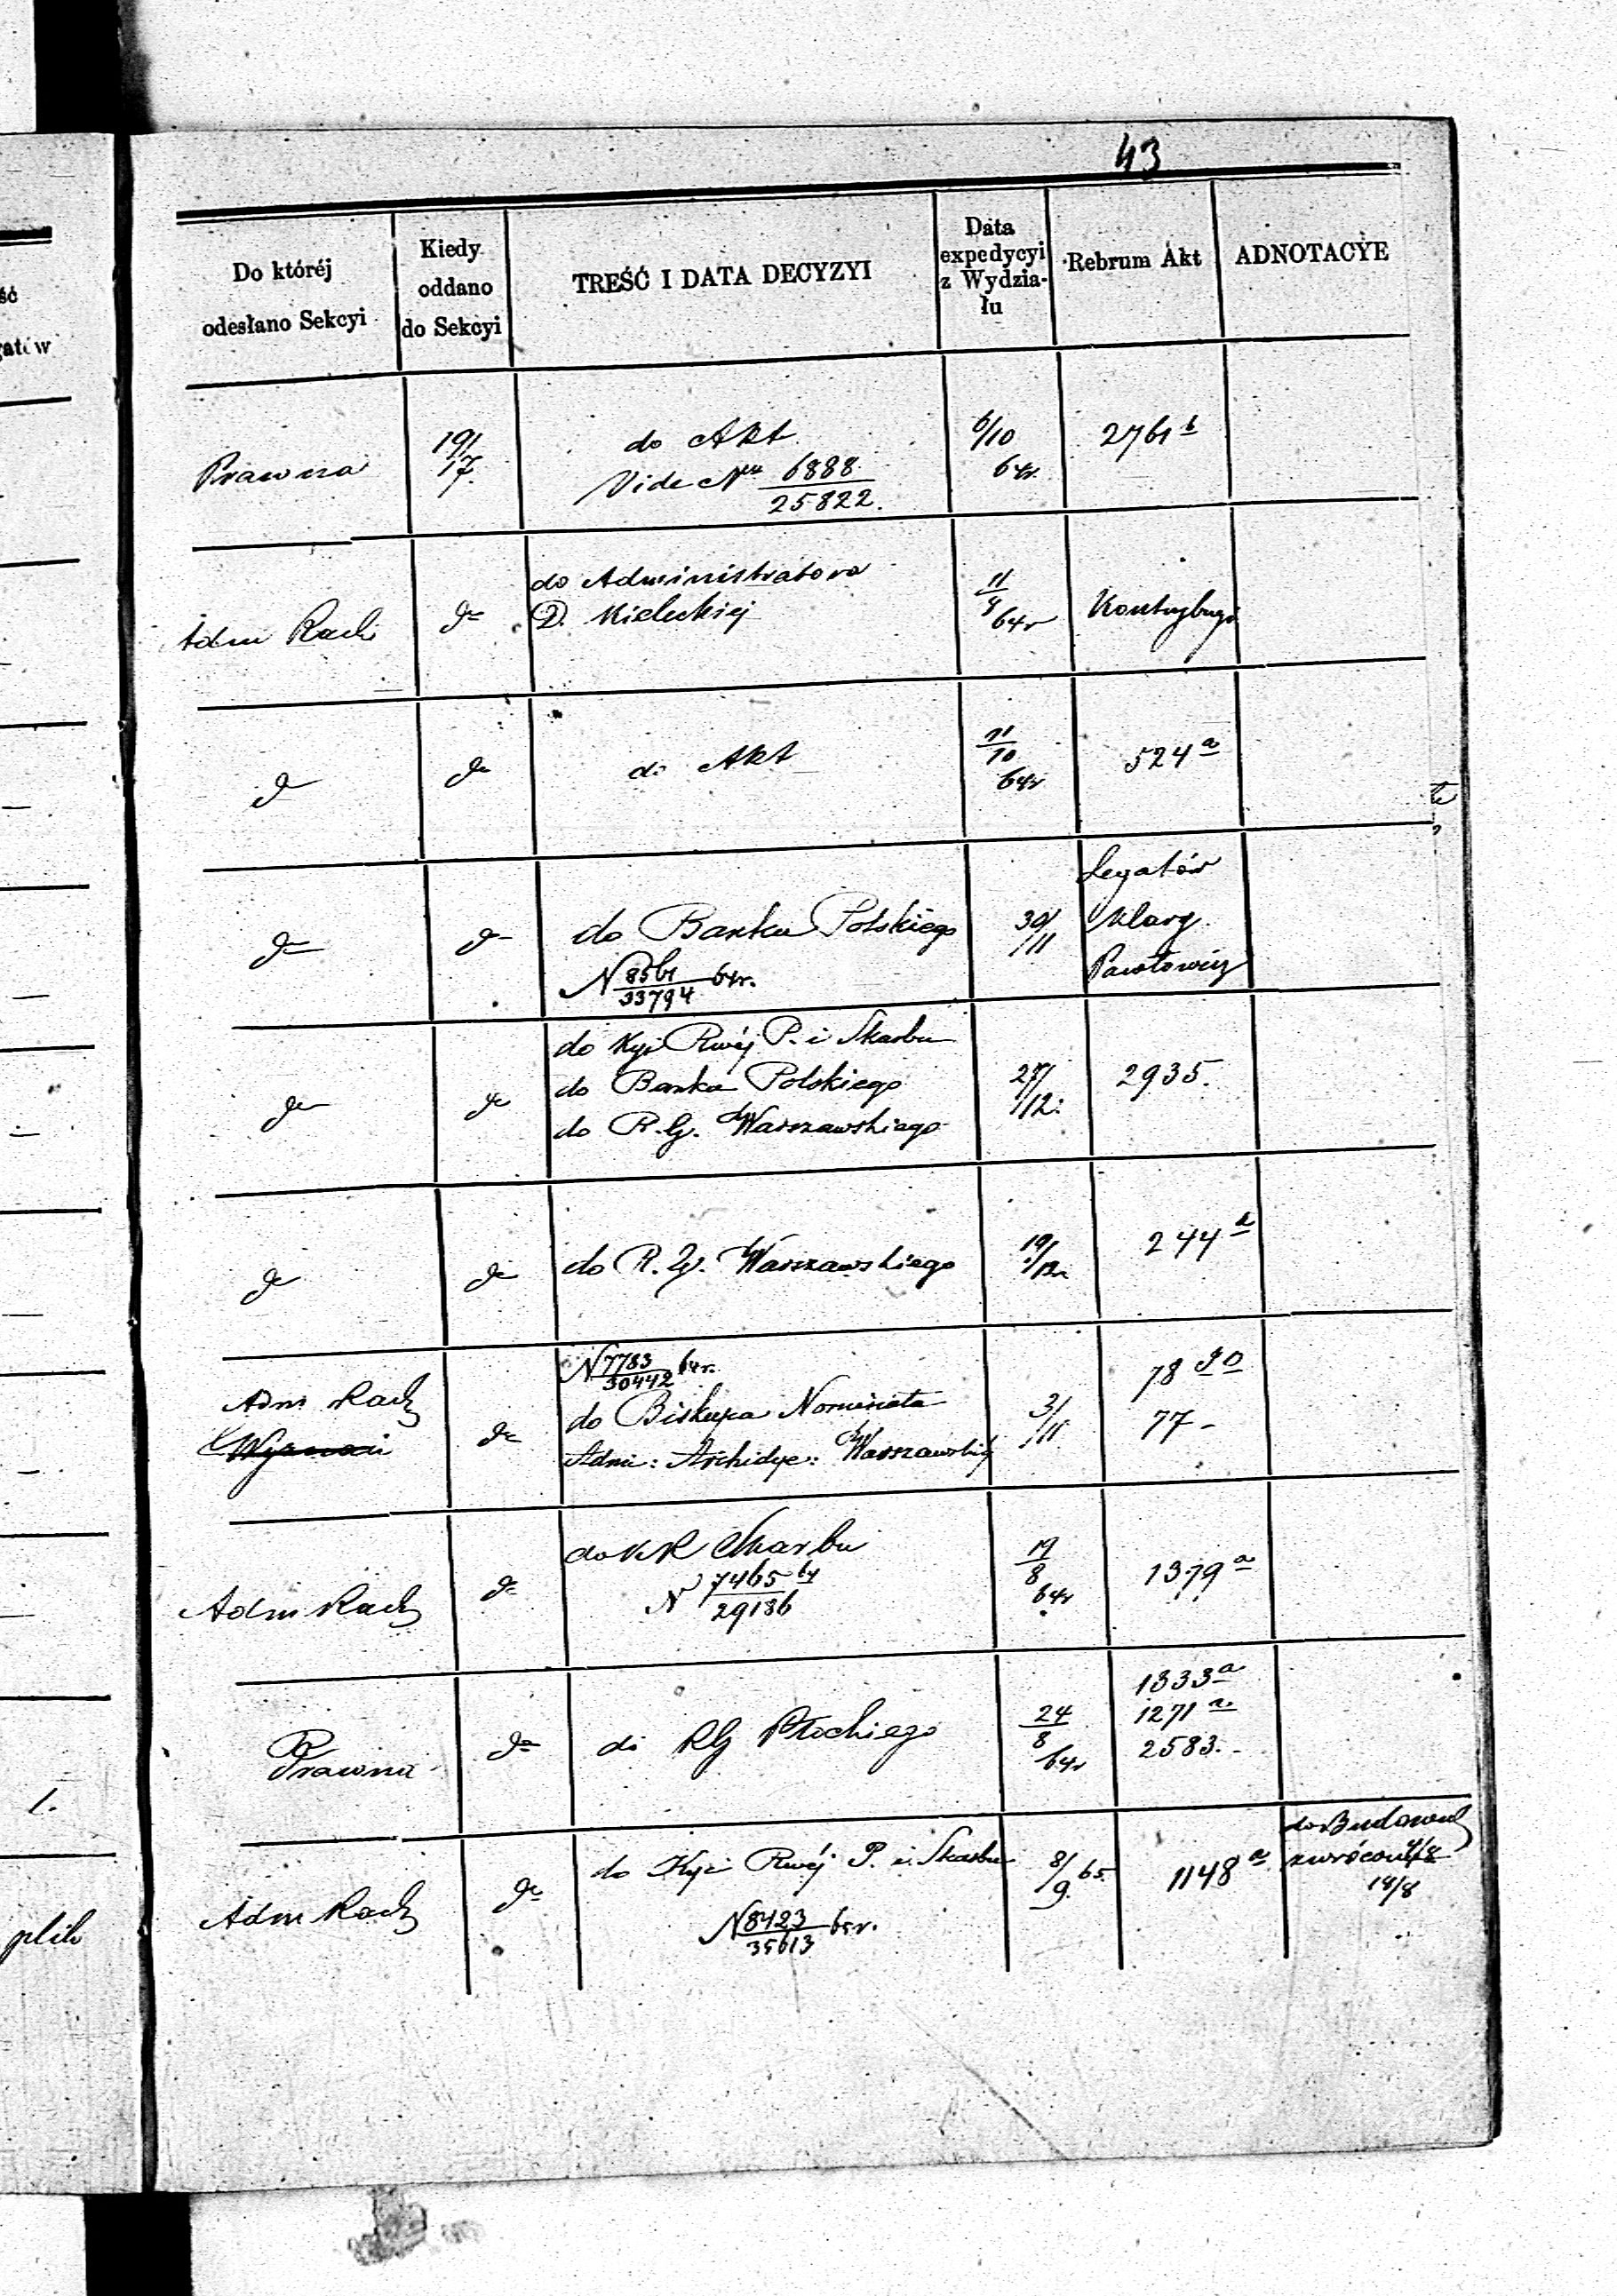 43
Do któréj
odesłano Sekcyi
Kiedy
oddano
do Sekcyi
TREŚĆ I DATA DECYZYI
Data
expedycyi
z Wydzia-
łu
Rebrum Akt
ADNOTACYE
Prawna
19/
17.
do Akt
Vide Nr 6888
25822.
6/10
64r.
2761 b
Adm Rach
do
do Administratora
D. Kieleckiej
11
8
64r
do
do
do Akt
11
10
64r
524 a
do
do
do Banku Polskiego
N 8561 64r.
33794
30/
/11
Legatów
Klary
Pawłowicz
do
do
do Kyi Rwéj P. i Skarbu
do Banku Polskiego
do R.G. Warszawskiego
27/
/12.
2935.
do
do
do R.G. Warszawskiego
19/
/12
244
Adm Rach
do
N 7783 64r.
30442
do Biskupa Nominata
Adm: Archidye: Warszawskiej
3/
/11
78
77 -
Adm Rach
do
do KR Skarbu
N 7465 64
29186
19
8
64r
1379 a
Prawna
do
do RG Płockiego
24
8
64r
1333 a
1271 a
2583. -
Adm Rach
do
do Kyi Rwéj P. i Skarbu
N 8423 65r.
35613
8/ 65.
9.
1148 a
do
18/8
ść
gatów
1.
plik